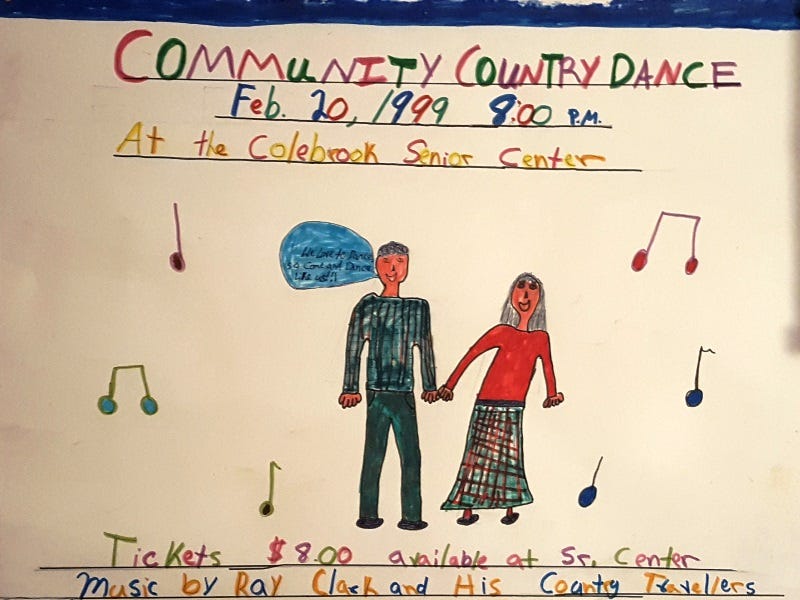 COMMUNITY COUNTRY DANCE
Feb. 20, 1999 8:00 P.M.
At the Colebrook Senior Center
We Love to Dance
So Come and Dance
Like us!!
Tickets $8.00 available at Sr. Center
Music by Ray Clack and His County Travellers